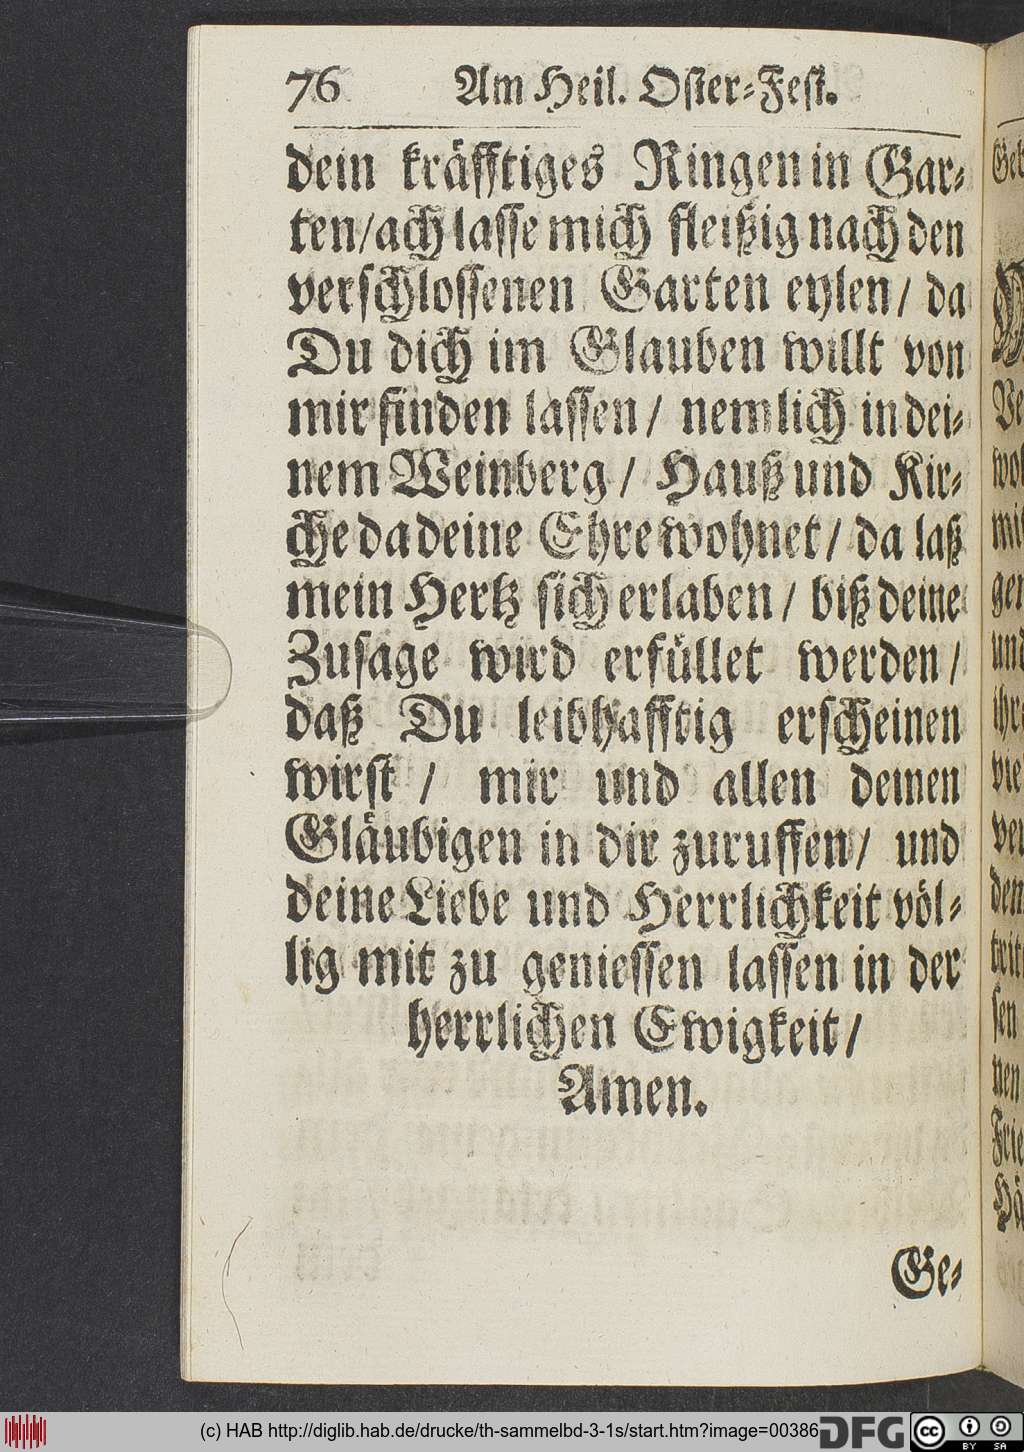 76 Am Heil. Oster-Fest.
dein kräfftiges Ringen in Gar-
ten/ ach lasse mich fleißig nach den
verschlossenen Garten eylen/ da
Du dich im Glauben willt von
mir finden lassen/ nemlich in dei-
nem Weinberg/ Hauß und Kir-
che da deine Ehre wohnet/ da laß
mein Hertz sich erlaben/ biß deine
Zusage wird erfüllet werden/
daß Du leibhafftig erscheinen
wirst/ mir und allen deinen
Gläubigen in dir zuruffen/ und
deine Liebe und Herrlichkeit völ-
lig mit zu geniessen lassen in der
herrlichen Ewigkeit/
Amen.
Ge-
(c) HAB http://diglib.hab.de/drucke/th-sammelbd-3-1s/start.htm?image=00386
DFG
cc BY SA